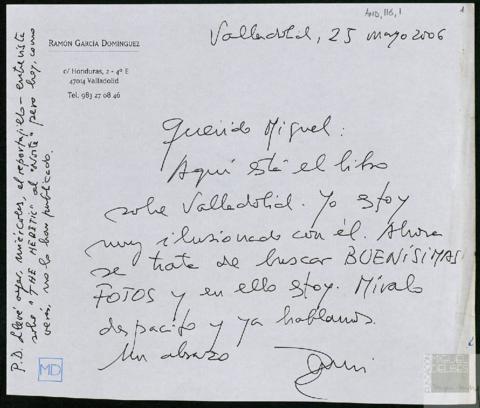 AMD, 118, 1
1
RAMÓN GARCÍA DOMÍNGUEZ
c/ Honduras, 2 - 4º E
47014 Valladolid
Tel. 983 27 08 46
Valladolid, 25 mayo 2006
Querido Miguel:
Aquí está el libro
sobre Valladolid. Yo estoy
muy ilusionado con él. Ahora
se trata de buscar BUENÍSIMAS
FOTOS y en ello estoy. Míralo
despacito y ya hablamos.
Un abrazo
P.D. Llevé ayer, miércoles, el reportajillo-entrevista
sobre "THE HERETIC" al "Norte" pero hoy, como
verás, no lo han publicado.
MD
MIGUEL
DELIBES